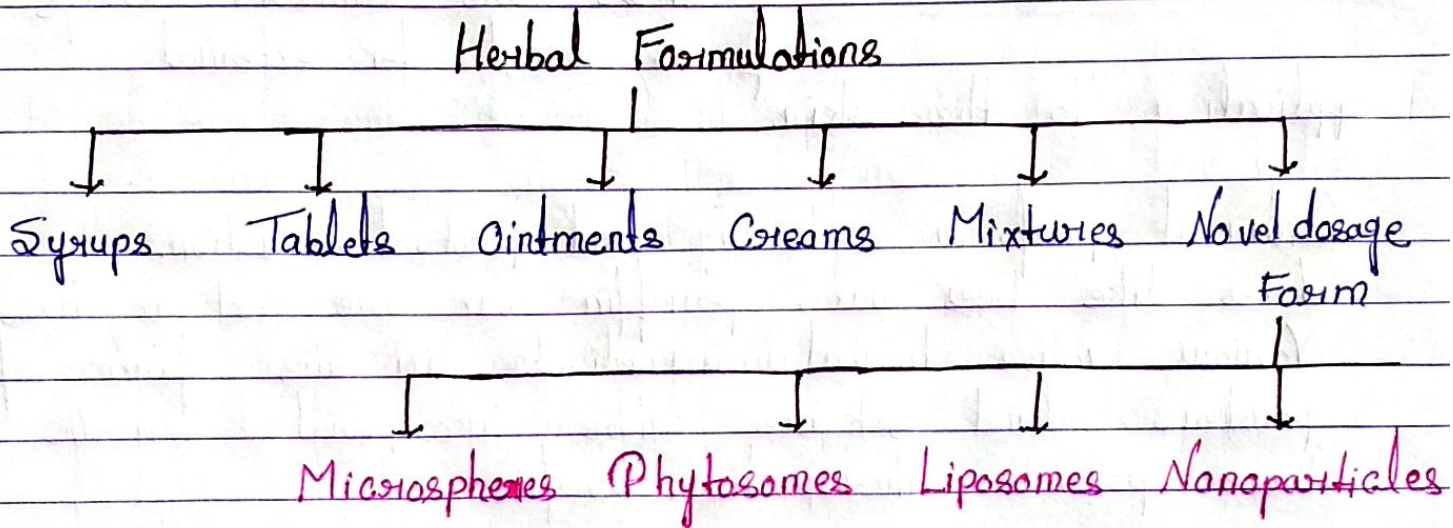 Herbal Formulations
Syrups Tablets Ointments Creams Mixtures Novel dosage
Form
Microspheres Phytosomes Liposomes Nanoparticles